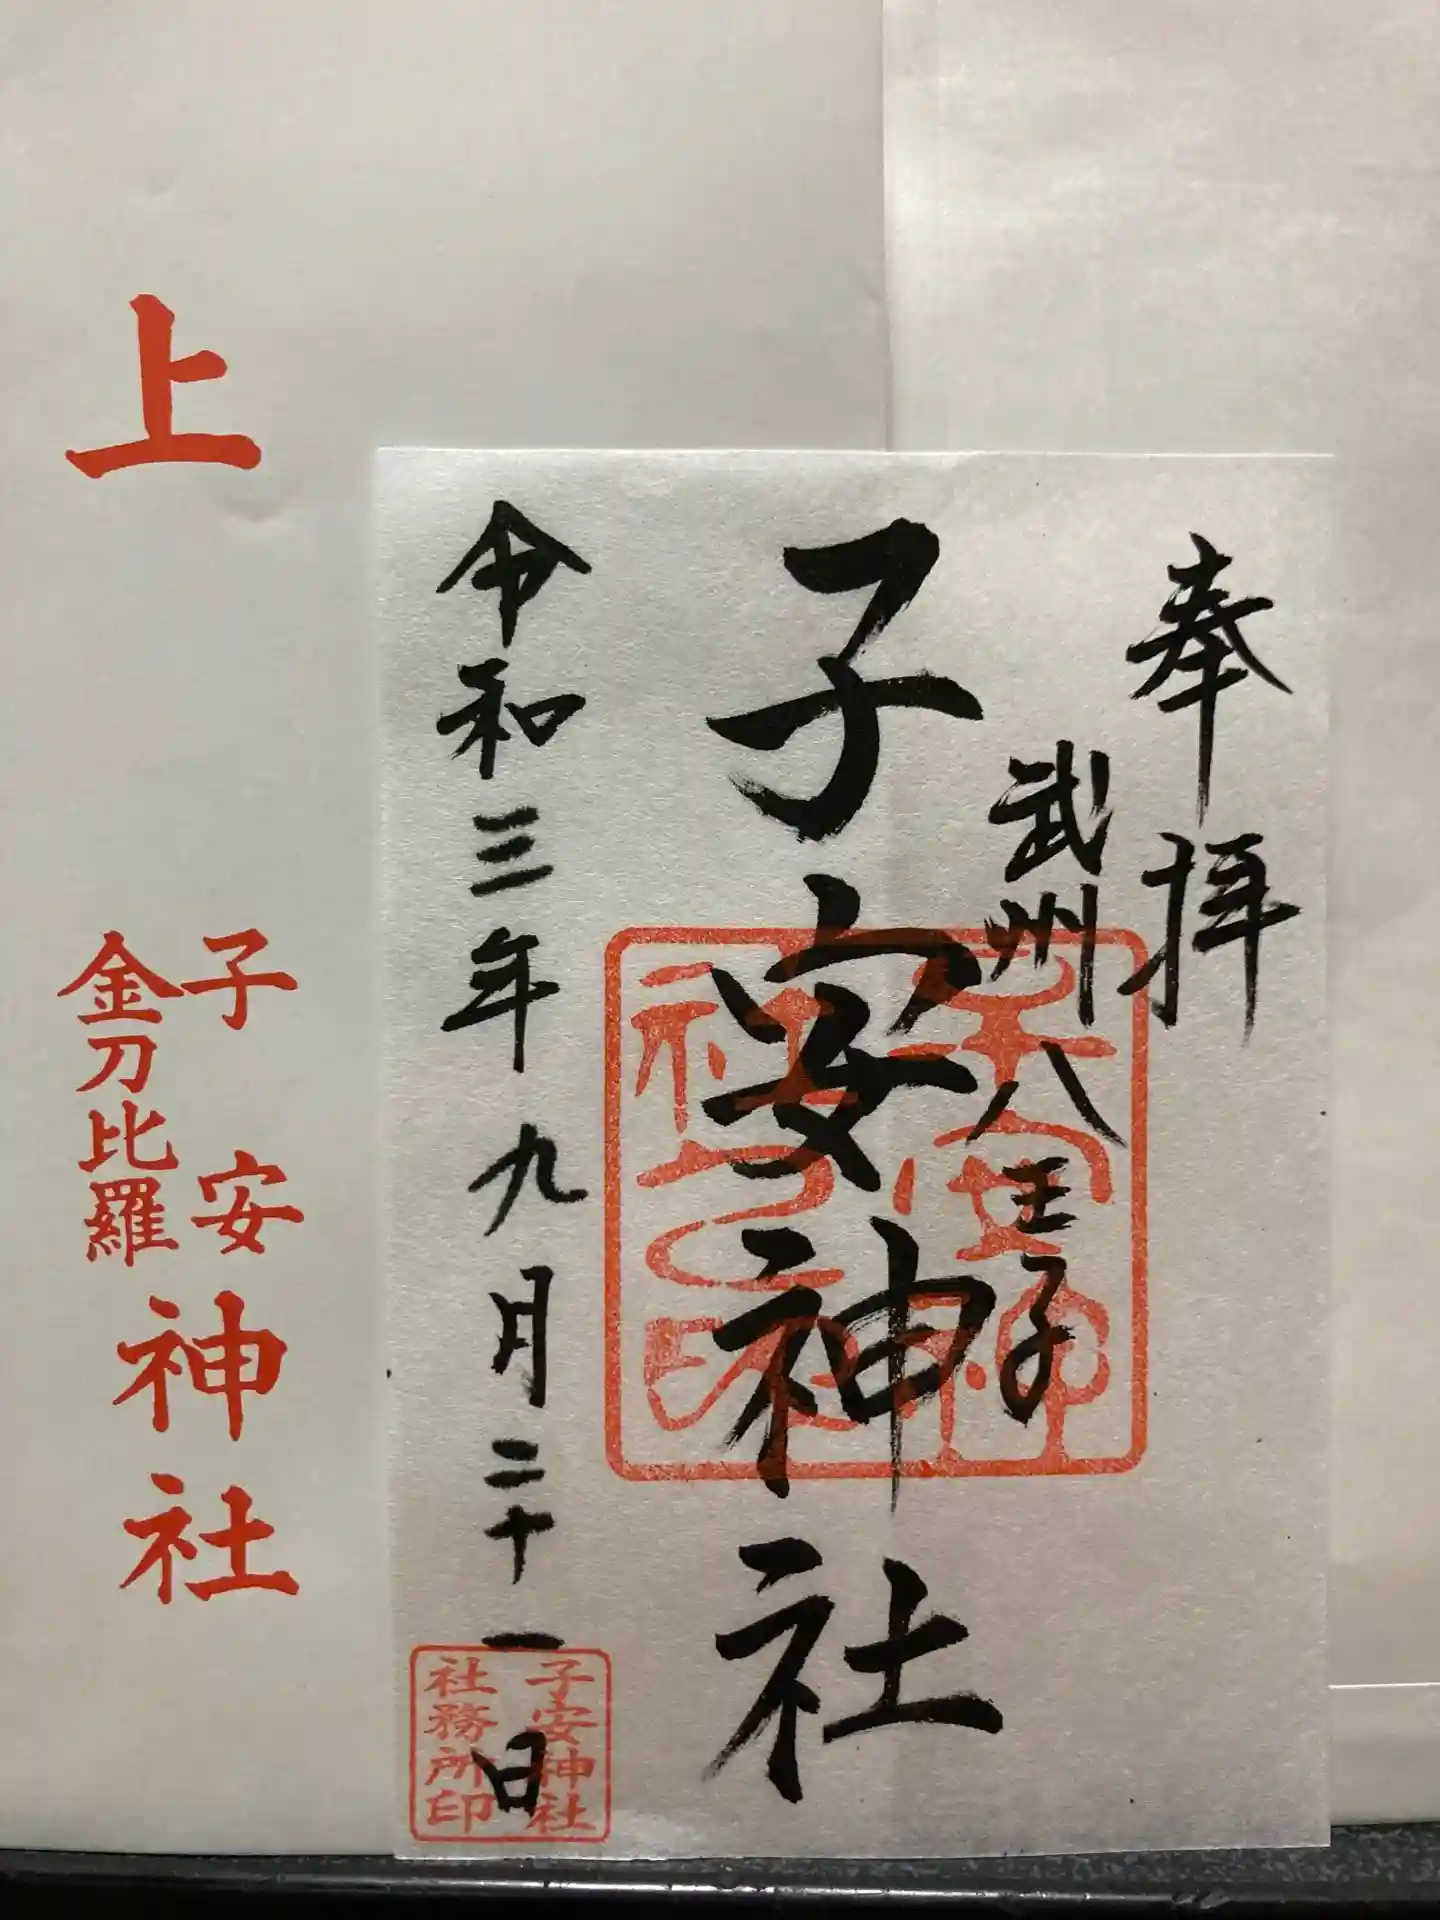 奉拝
武州八王子
子安神社
令和三年九月二十一日
子安神社
社務所印
上
子安神社
金刀比羅